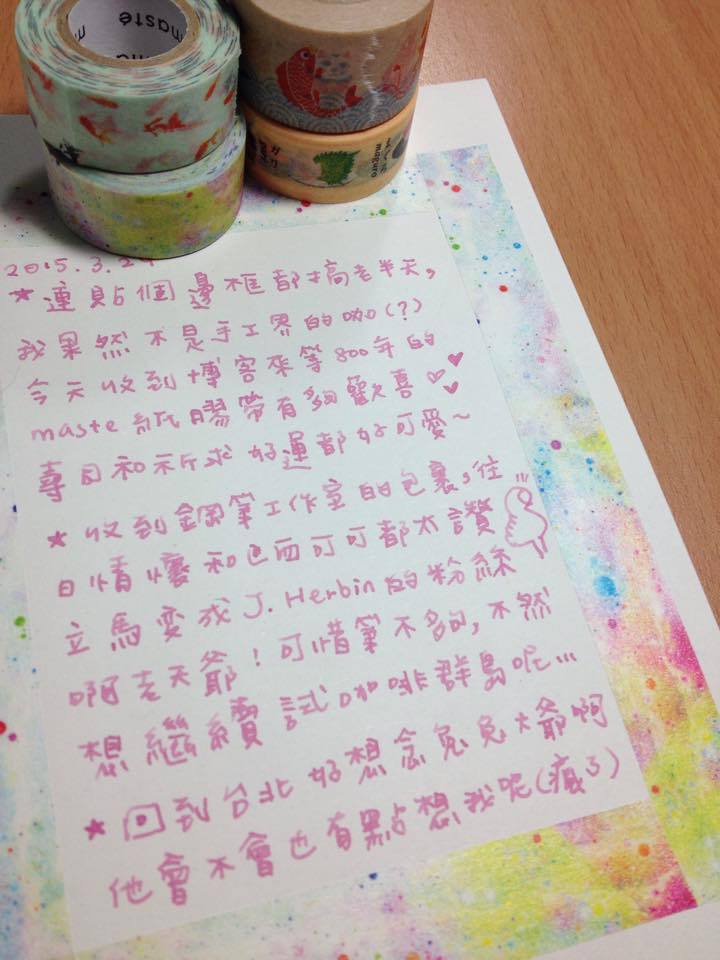 maste
2015.3.2
★連貼個邊框都搞老半天,
我果然不是手工界的咖(?)
今天收到博客來等800年的
maste紙膠帶有夠歡喜♡♥♥
壽目和祈求好運都好可愛~
★收到鋼筆工作室的包裹,往
日情懷和巴西可可都太讚
立馬變成J. Herbin的粉絲
啊老天爺!可惜筆不夠,不然
想繼續試咖啡群島呢...
★回到台北好想念兔兔大爺啊
他會不會也有點想我呢(瘋了)